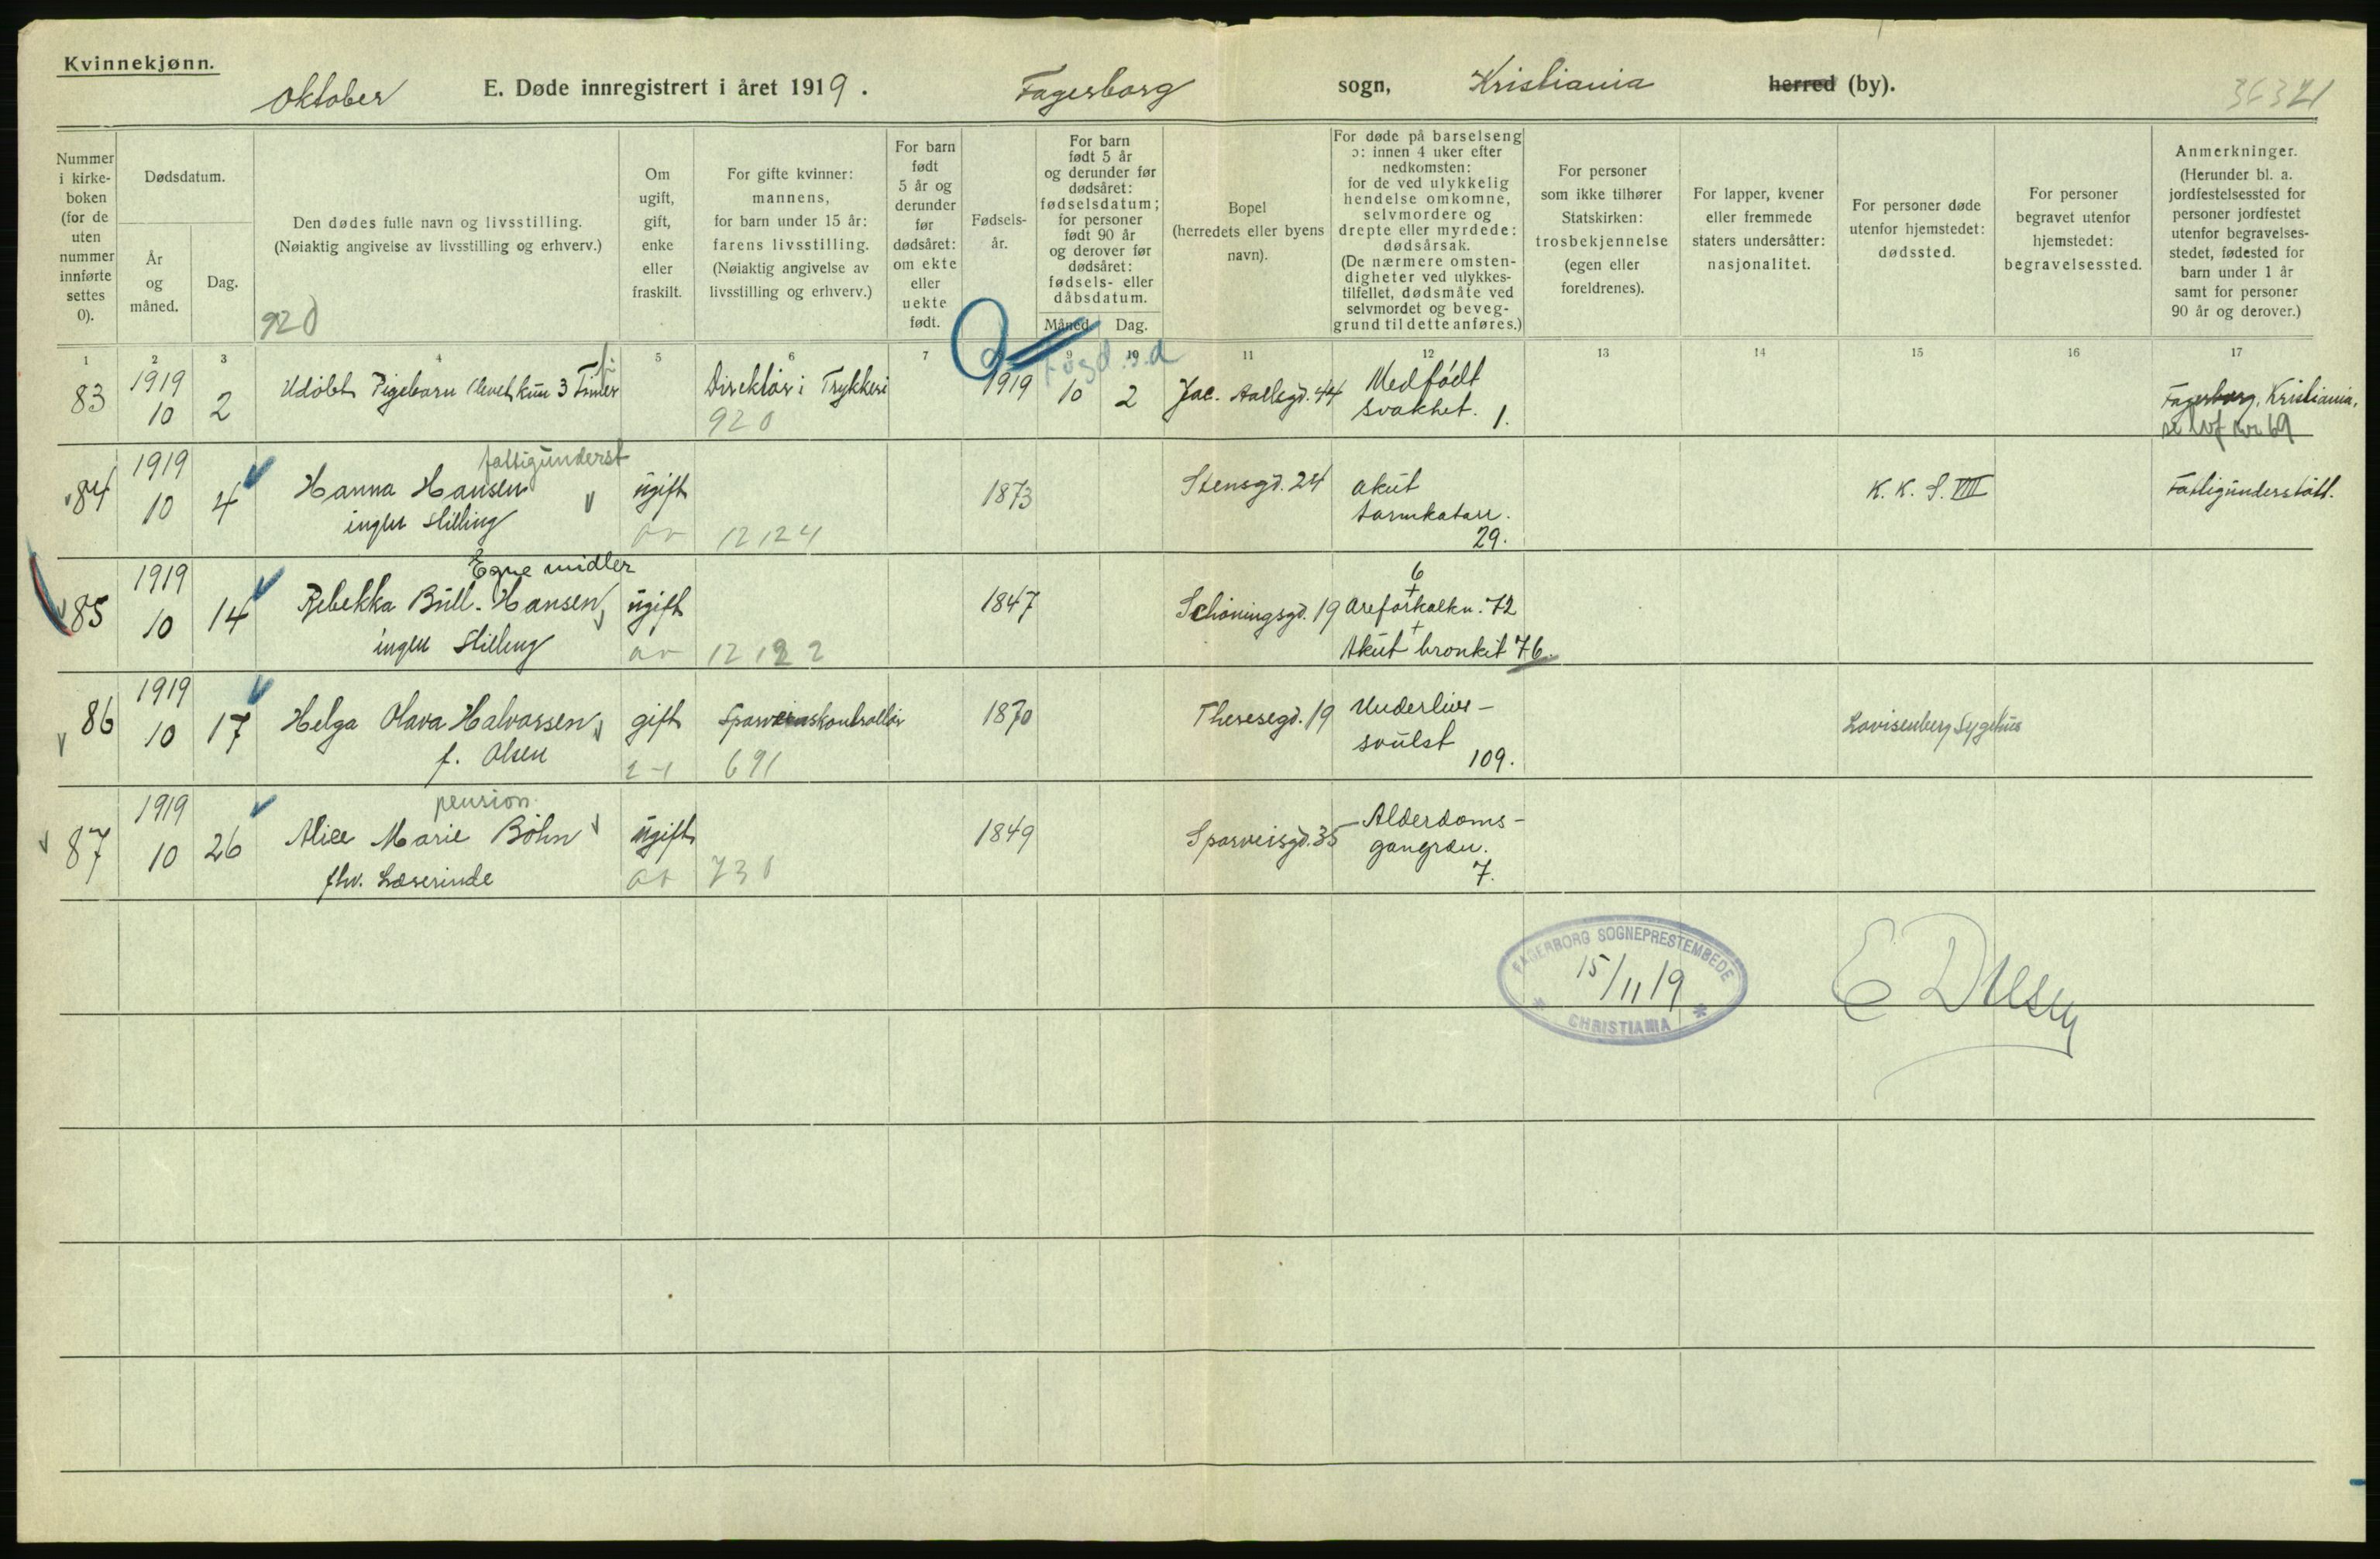 Kvinnekjønn.
Oktober E. Døde innregistrert i året 1919. Fagerborg sogn, Kristiania herred (by).
Nummer i kirkeboken (for de uten nummer innførte settes 0).
Dødsdatum.
År og måned.
Dag.
Den dødes fulle navn og livsstilling.
(Nøiaktig angivelse av livsstilling og erhverv.)
920
Om ugift, gift, enke eller fraskilt.
For gifte kvinner: mannens, for barn under 15 år: farens livsstilling. (Nøiaktig angivelse av livsstilling og erhverv.)
For barn født 5 år og derunder før dødsåret: om ekte eller uekte født.
Fødselsår.
For barn født 5 år og derunder før dødsåret: fødselsdatum; for personer født 90 år og derover før dødsåret: fødsels- eller dåbsdatum.
Måned. Dag.
Bopel (herredets eller byens navn).
For døde på barselseng ɔ: innen 4 uker efter nedkomsten: for de ved ulykkelig hendelse omkomne, selvmordere og drepte eller myrdede: dødsårsak. (De nærmere omstendigheter ved ulykkestilfellet, dødsmåte ved selvmordet og beveggrund til dette anføres.)
For personer som ikke tilhører Statskirken: trosbekjennelse (egen eller foreldrenes).
For lapper, kvener eller fremmede staters undersåtter: nasjonalitet.
For personer døde utenfor hjemstedet: dødssted.
For personer begravet utenfor hjemstedet: begravelsessted.
Anmerkninger. (Herunder bl. a. jordfestelsessted for personer jordfestet utenfor begravelsesstedet, fødested for barn under 1 år samt for personer 90 år og derover.)
1 2 3 4 5 6 7 9 10 11 12 13 14 15 16 17
83 1919 10 2 Udøbt Pigebarn levet kun 3 Timer Direktør i Trykkeri 1919 10 2 Jac. Aallsgd. 44 Medfødt Fagerborg, Kristiania,
920 svakhet. 1.
84 1919 10 4 Hanna Hansen fattigunderst ugift 1873 Stensgd. 24 akut K. K. S. VIII Fattigunderstøtt.
ingen stilling 12124 tarmkatarr. 29.
85 1919 10 14 Rebekka Bull-Hansen Egne midler ugift 1847 Schøningsgd. 19 6 + Areforkalkn. 72
ingen Stilling 12122 + Akut bronkit 76.
86 1919 10 17 Helga Olava Halvorssen gift Sporveiskontrollør 1870 Theresegd. 19 Underlivs- Lovisenberg Sygehus
f. Olsen 2-1 691 svulst 109.
87 1919 10 26 Alice Marie Böhn pension ugift 1849 Sporveisgd. 35 Alderdoms-
fhv. Læserinde 730 gangræn. 7.
FAGERBORG SOGNEPRESTEMBEDE
15/11 19
* CHRISTIANIA *